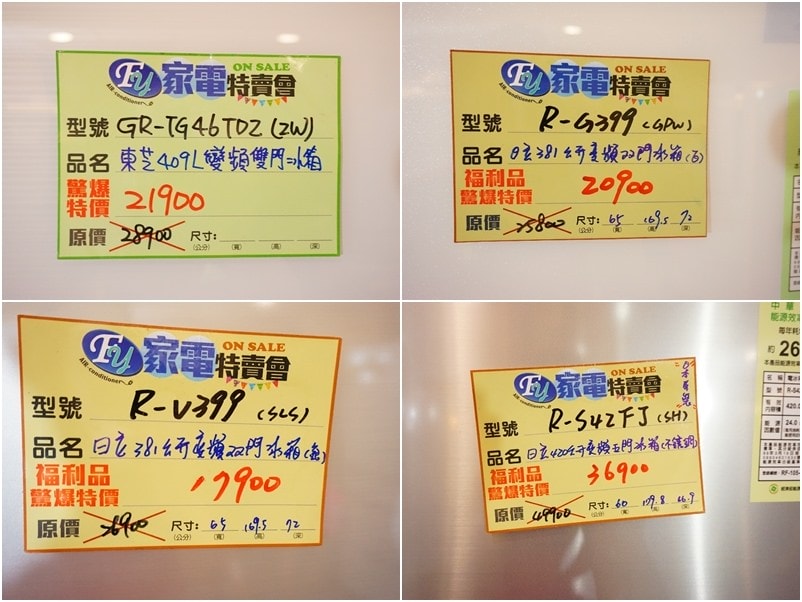 Fy 家電特賣會 ON SALE
AIR-conditioner
型號 GR-TG46TDZ (ZW)
品名 東芝409L變頻雙門冰箱
驚爆特價 21900
原價 28900 尺寸:
(公分) (寬) (高) (深)
Fy 家電特賣會 ON SALE
AIR-conditioner
型號 R-G399 (GPW)
品名 日立381公升變頻双門冰箱
福利品
驚爆特價 20900
原價 25800 尺寸: 65 169.5 72
(公分) (寬) (高) (深)
Fy 家電特賣會 ON SALE
AIR-conditioner
型號 R-V399 (SLS)
品名 日立381公升變頻双門冰箱
福利品
驚爆特價 17900
原價 26900 尺寸: 65 169.5 72
(公分) (寬) (高) (深)
Fy 家電特賣會 ON SALE
AIR-conditioner
日本原裝
型號 R-S42FJ (SH)
品名 日立420公升變頻五門冰箱(不銹鋼)
福利品
驚爆特價 36900
原價 49900 尺寸: 60 179.8 66.9
(公分) (寬) (高) (深)
中華
能源效率
每年耗
約 26
420.
24.0